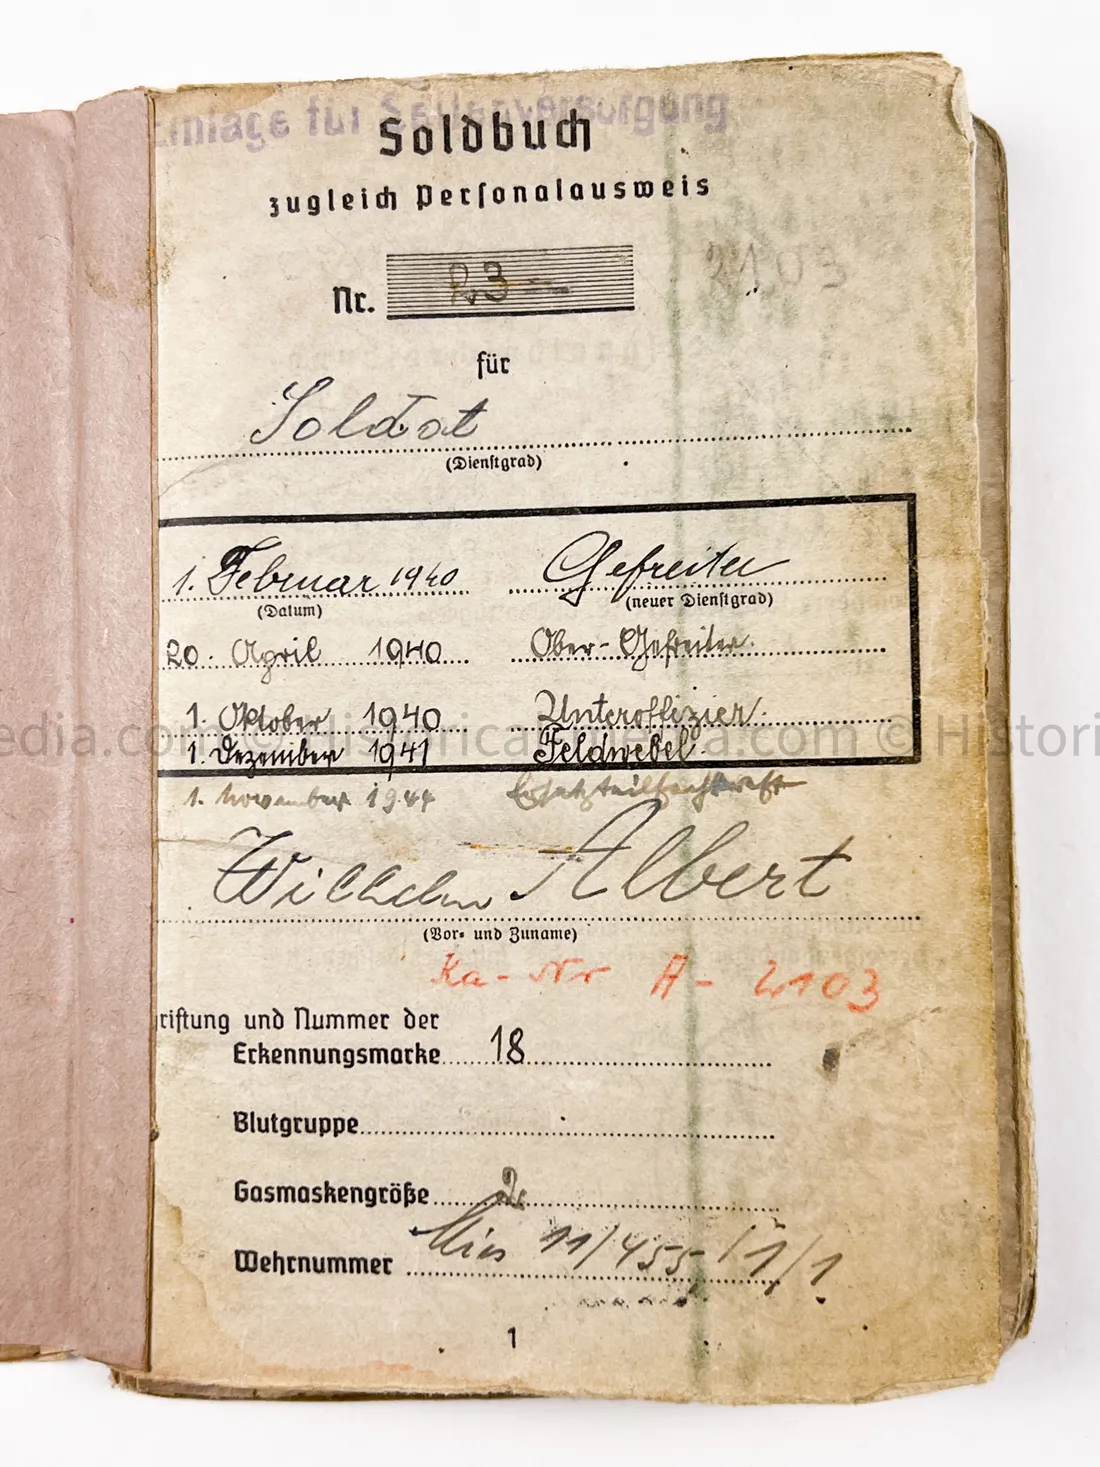 Einlage für Seifenversorgung
Soldbuch
zugleich Personalausweis
Nr. 23
2103
für
Soldat
(Dienstgrad)
1. Februar 1940 Gefreiter
(Datum) (neuer Dienstgrad)
20. April 1940 Ober-Gefreiter
1. Oktober 1940 Unteroffizier
1. Dezember 1941 Feldwebel
1. November 1944
Wilhelm Albert
(Vor- und Zuname)
Ka-Nr A-2103
riftung und Nummer der
Erkennungsmarke 18
Blutgruppe
Gasmaskengröße 2
Wehrnummer 11/455
1
edia.com Historicalmedia.com © Histori